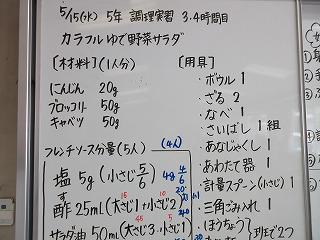 5/15(水) 5年 調理実習 3.4時間目
カラフルゆで野菜サラダ
[材料](1人分)
にんじん 20g
ブロッコリー 50g
キャベツ 50g
フレンチソース分量(5人) (4人)
塩 5g (小さじ5/6) 4g 4/6
す
酢 25mL(大さじ1+小さじ2)
15 10 20
サラダ油 50mL(大さじ3.小さじ1)
45 5 40
[用具]
・ボウル 1
・ざる 2
・なべ 1
・さいばし 1組
・あなじゃくし 1
・あわたて器 1
・計量スプーン(小さじ) 1
・三角ごみ入れ 1
・ほうちょう
班で2つ